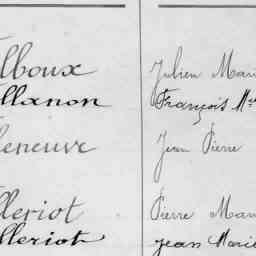 lboux Julien Mari
llanon François M
leneuve Jean Pierre
lleriot Pierre Mari
lleriot Jean Marie